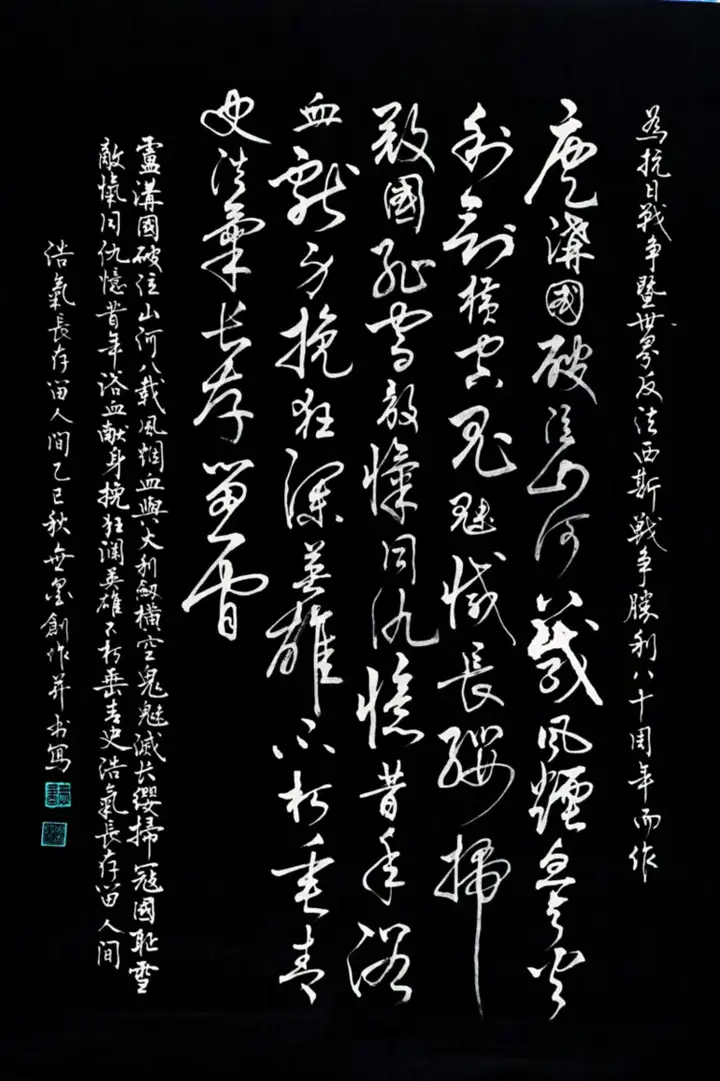 為抗日戰争暨世界反法西斯戰争勝利八十周年而作
盧溝國破泣山河八載風煙血與火
利劍橫空鬼魅滅長纓掃
寇國耻雪敵愾同仇憶昔年浴
血獻身挽狂瀾英雄不朽垂青
史浩氣长存留人間
盧溝國破泣山河八載風烟血與火利劍橫空鬼魅滅长纓掃寇國耻雪
敵愾同仇憶昔年浴血献身挽狂瀾英雄不朽垂青史浩氣長存留人间
浩氣長存留人间乙巳秋無墨創作并书寫